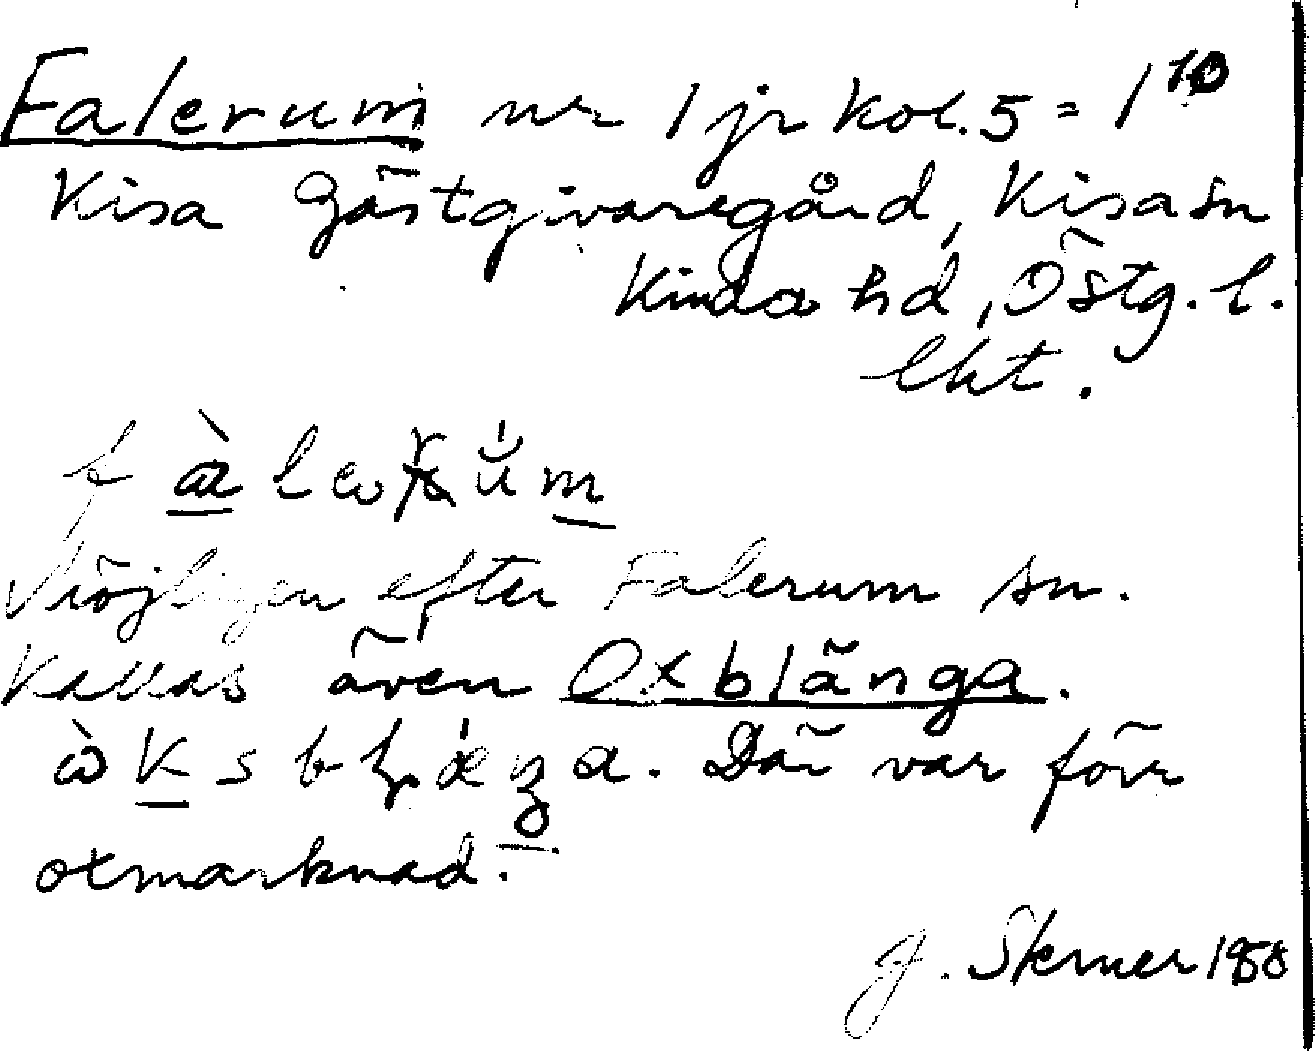 Falerum nr 1 jr kol. 5 = 1¹⁰
Kisa Gästgivaregård, Kisa sn
Kinda hd, Östg. l.
lht.
Möjligen efter Falerum sn.
Kallas även Oxblänga.
Där var förr
oxmarknad.
J. Sterner 1958